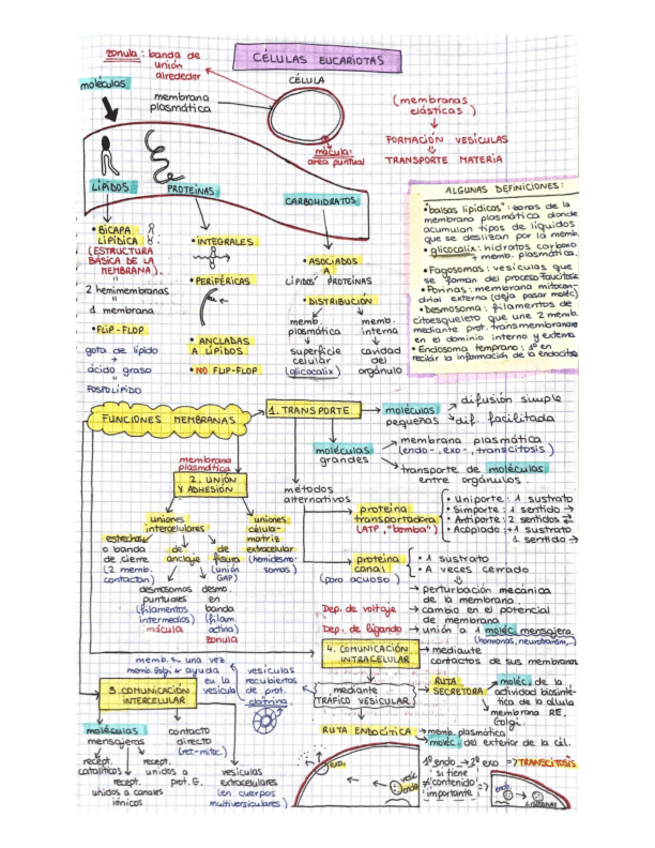 CÉLULAS EUCARIOTAS
zonula: banda de
unión
alrededor
CÉLULA
moléculas
membrana
plasmática
mácula:
área puntual
(membranas
elásticas)
FORMACIÓN VESÍCULAS
TRANSPORTE MATERIA
LÍPIDOS
PROTEÍNAS
CARBOHIDRATOS
• BICAPA
LIPÍDICA
(ESTRUCTURA
BÁSICA DE LA
MEMBRANA).
2 hemimembranas
1 membrana
• FLIP-FLOP
gota de lípido
+
ácido graso
FOSFOLÍPIDO
• INTEGRALES
• PERIFÉRICAS
• ANCLADAS
A LÍPIDOS
• NO FLIP-FLOP
• ASOCIADOS
A
LÍPIDOS PROTEÍNAS
• DISTRIBUCIÓN
memb. plasmática
memb. interna
superficie
celular
(glicocalix)
cavidad
del
orgánulo
ALGUNAS DEFINICIONES:
• "balsas lipídicas": zonas de la
membrana plasmática donde
acumulan tipos de líquidos
que se deslizan por la memb.
• glicocalix: hidratos carbono
+ memb. plasmática.
• Fagosomas: vesículas que
se forman del proceso
• Porinas: membrana mitocon-
drial externa (deja pasar moléc)
• Desmosoma: filamentos de
citoesqueleto que une 2 memb.
mediante prot. transmembranares
en el dominio interno y externo
• Endosoma temprano: 1º en
recibir la información de la
FUNCIONES MEMBRANAS
1. TRANSPORTE
moléculas
pequeñas
difusión simple
dif. facilitada
moléculas
grandes
membrana plasmática
(endo-, exo-, transcitosis)
transporte de moléculas
entre orgánulos.
métodos
alternativos
proteína
transportadora
(ATP, "bomba")
• Uniporte: 1 sustrato
• Simporte: 1 sentido →
• Antiporte: 2 sentidos ⇄
• Acoplado: +1 sustrato
1 sentido →
proteína
canal
(poro acuoso)
• 1 sustrato
• A veces cerrado
→ perturbación mecánica
de la membrana.
Dep. de voltaje → cambio en el potencial
de membrana
Dep. de ligando → unión a 1 moléc. mensajera.
(hormonas, neurotransm,..)
membrana
plasmática
2. UNIÓN
Y ADHESIÓN
uniones
intercelulares
uniones
célula-
matriz
extracelular
(hemidesmo-
somas)
estrechas
o banda
de cierre
(2 memb.
contactan)
de
anclaje
de
fisura
(unión
GAP)
desmosomas
puntuales
(filamentos
intermedios)
mácula
desmo.
en
banda
(filam.
actina)
zonula
3. COMUNICACIÓN
INTERCELULAR
moléculas
mensajeras
contacto
directo
recept.
catalíticos
recept.
unidos a canales
iónicos
recept.
unidos a
prot. G.
vesículas
extracelulares
(en cuerpos
multivesiculares)
4. COMUNICACIÓN
INTRACELULAR
→ mediante
contactos de sus membranas
mediante
TRÁFICO VESICULAR
vesículas
recubiertos
de prot.
clatrina.
memb. ← una vez
memb. Golgi ← ayuda
en la
vesícula
RUTA
SECRETORA
moléc. de la
actividad biosinté-
tica de la célula
membrana RE,
Golgi.
RUTA ENDOCÍTICA
→ memb. plasmática
moléc. del exterior de la cél.
exo.
vesíc.
endo.
1º endo → 2º exo => TRANSCITOSIS
si tiene
contenido
importante
endo.